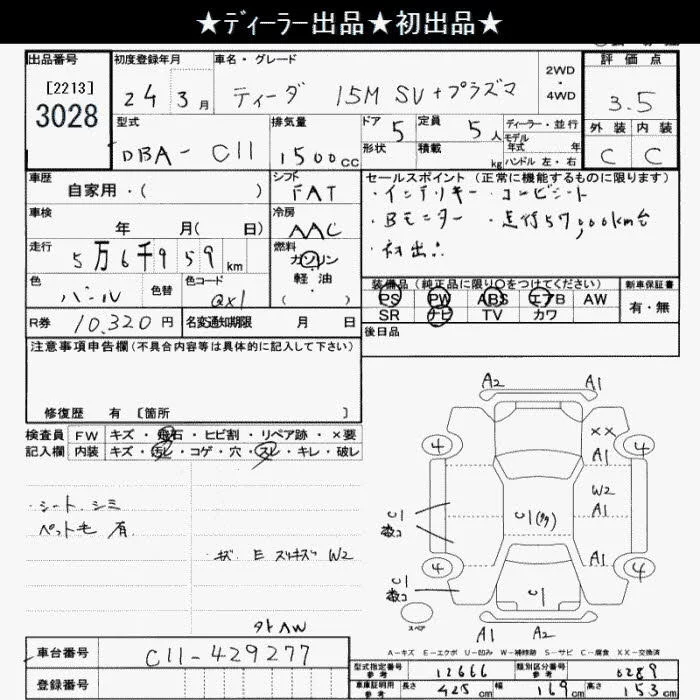 ★ディーラー出品★初出品★
出品番号
[2213]
3028
初度登録年月
24 3月
車名・グレード
ティーダ 15M SV+プラズマ
2WD
・
4WD
評価点
3.5
外装 内装
C C
型式
DBA-C11
排気量
1500cc
ドア 5
形状
定員 5人
積載 kg
ディーラー・並行
モデル年式 年
ハンドル 左・右
車歴
自家用・( )
シフト
FAT
セールスポイント (正常に機能するものに限ります)
・インテリキー ・コンビシート
・Bモニター ・走行57,000km台
・初出品
車検
年 月( 日)
冷房
AAC
走行
5万6千959km
燃料
ガソリン
軽油
( )
色
パール
色替
色コード
QX1
装備品 (純正品に限り○をつけてください)
PS PW ABS エアB AW
SR ナビ TV カワ
新車保証書
有・無
R券 10,320円
名変通知期限 月 日
後日品
注意事項申告欄(不具合内容等は具体的に記入して下さい)
修復歴 有 [箇所 ]
検査員
記入欄
FW キズ・飛石・ヒビ割・リペア跡・×要
内装 キズ・汚レ・コゲ・穴・スレ・キレ・破レ
・シート、シミ
ペット毛 有
・キズ E スリキズ W2
タトAW
A2 A1
XX
4 4
A1
W2
A1
U1
数コ
U1(多)
A1
4 4
U1
数コ
U1
スペア
A1 A2
A-キズ E-エクボ U-凹み W-補修跡 S-サビ C-腐食 XX-交換済
車台番号 C11-429277
登録番号
型式指定番号
参考
12666
類別区分番号
参考
0289
車庫証明用
参考
長さ 425cm 幅 169cm 高さ 153cm